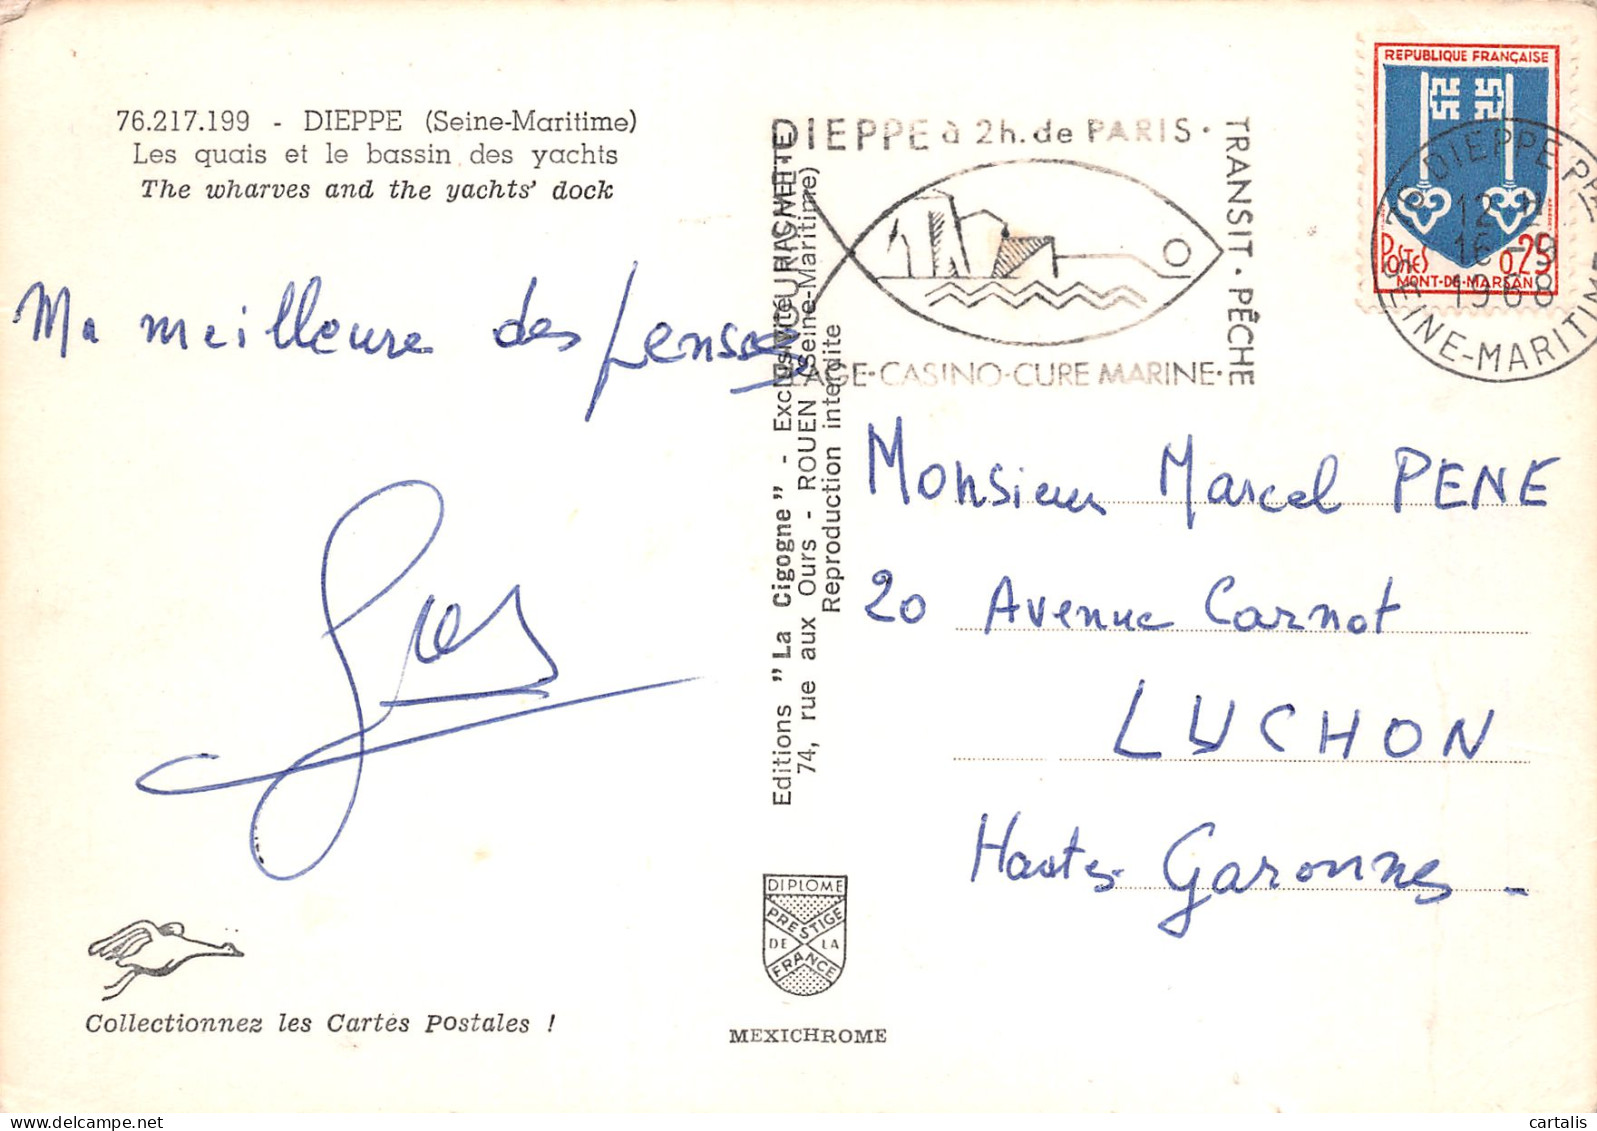 76.217.199 - DIEPPE (Seine-Maritime)
Les quais et le bassin des yachts
The wharves and the yachts' dock
Ma meilleure des pensées
Collectionnez les Cartes Postales !
Editions "La Cigogne" - Exclusivité
74, rue aux Ours - ROUEN (Seine-Maritime)
Reproduction interdite
DIPLOME
PRESTIGE
DE LA
FRANCE
MEXICHROME
DIEPPE à 2h. de PARIS ·
TRANSIT · PÊCHE
PLAGE · CASINO - CURE MARINE ·
REPUBLIQUE FRANÇAISE
POSTES
0,25
MONT-DE-MARSAN
76 DIEPPE PAL
12 H
16 - 9
1968
SEINE-MARITIME
Monsieur Marcel PENE
20 Avenue Carnot
LUCHON
Hautes Garonnes -
cartalis